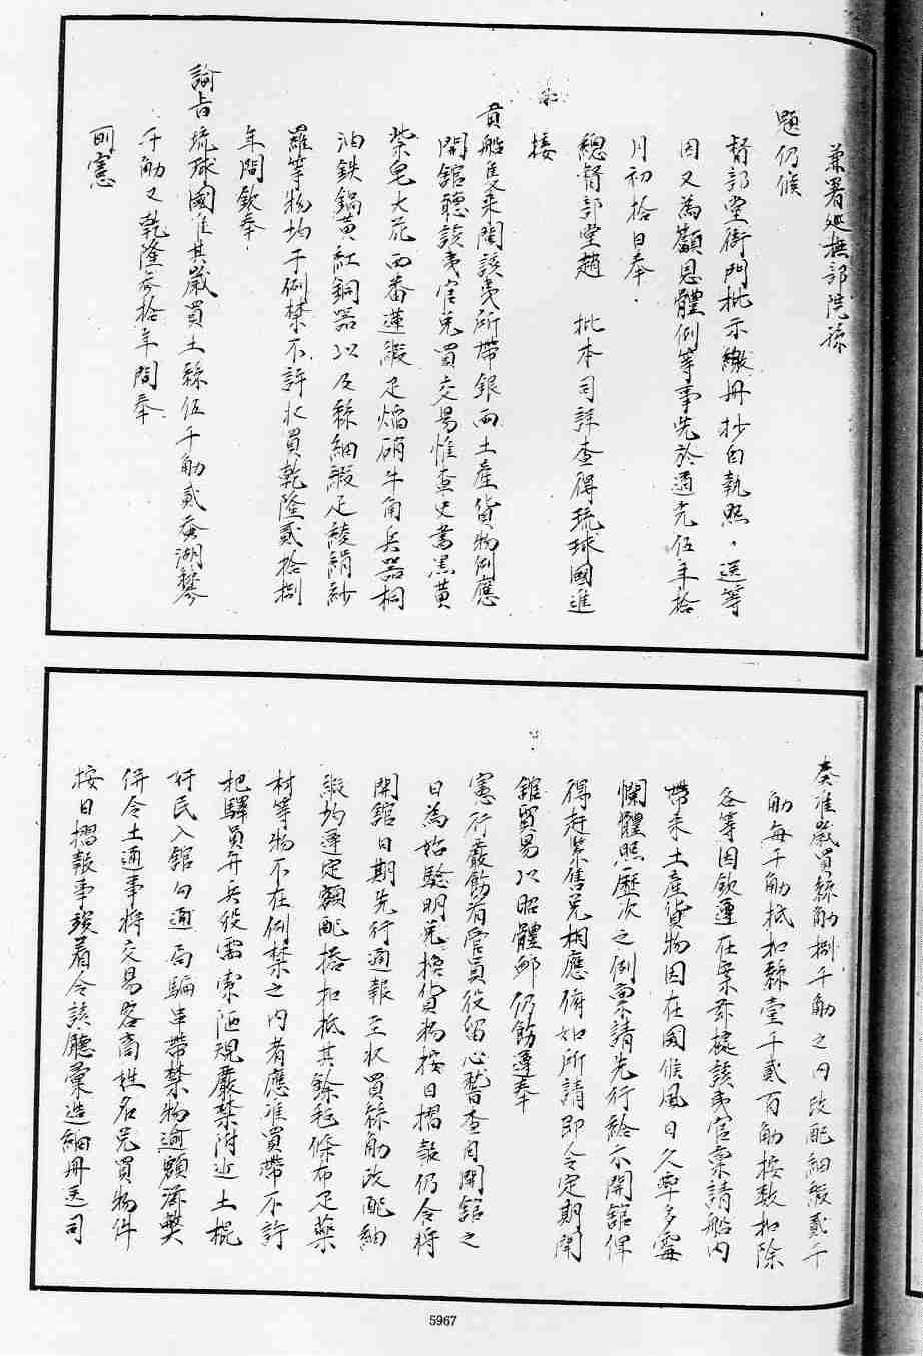 兼署巡撫部院孫
題仍候
督部堂衙門批示繳冊抄白執照送等
因又為籲恩體例等事先於道光伍年拾
月初拾日奉
總督部堂趙 批本司詳查得琉球國進
接
貢船隻來閩該夷所帶銀兩土產貨物例應
開館聽該夷官兌買交易惟查史書黑黃
柴皂大花西番蓮緞疋焰硝牛角兵器桐
油鉄鍋黃紅銅器以及絲綢緞疋綾絹紗
羅等物均干例禁不許收買乾隆貳拾捌
年間欽奉
諭旨琉球國准其歲買土絲伍千觔貳蚕湖絲
千觔又乾隆叁拾年間奉
前憲
奏准歲買絲觔捌千觔之內改配綢緞貳千
觔每千觔抵扣絲壹千貳百觔按數扣除
各等因欽遵在案茲據該夷官稟請船內
帶來土產貨物因在國候風日久率多霉
爛體照歷次之例稟請先行給示開館俾
得赶緊售兌相應俯如所請即令定期開
館貿易以昭體卹仍飭遵奉
憲行嚴飭看管員役留心稽查自開館之
日為始驗明兌換貨物按日摺報仍令將
開館日期先行通報至收買絲觔改配綢
緞均遵定額配搭扣抵其餘毛條布疋藥
材等物不在例禁之內者應准買帶不許
把驛員弁兵役需索陋規嚴禁附近土棍
奸民入館勾通局騙串帶禁物逾額滋弊
併令土通事將交易客商姓名兌買物件
按日摺報事竣着令該廳彙造細冊送司
5967